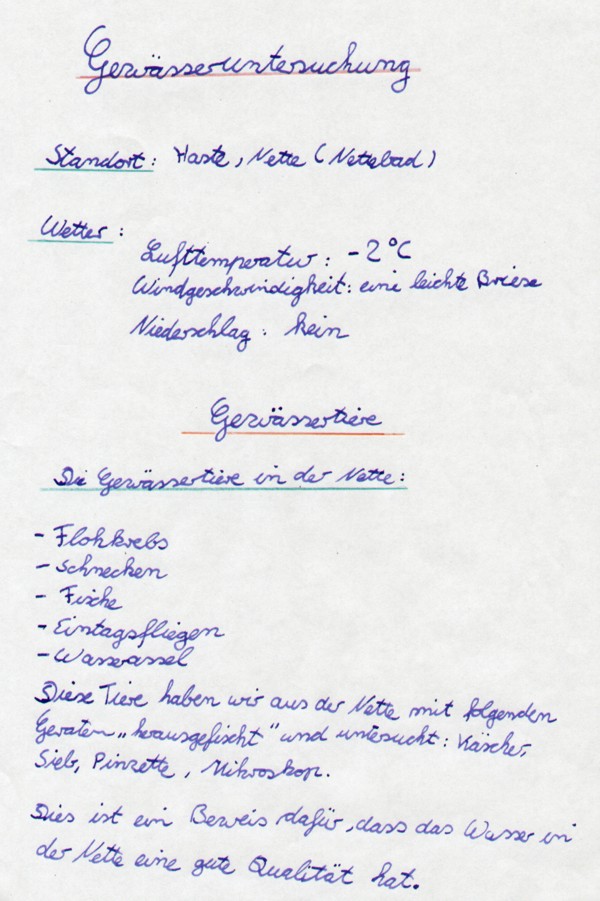 Gewässeruntersuchung
Standort: Haste, Nette (Nettebad)
Wetter:
Lufttemperatur: -2°C
Windgeschwindigkeit: eine leichte Briese
Niederschlag: kein
Gewässertiere
Die Gewässertiere in der Nette:
- Flohkrebs
- Schnecken
- Fische
- Eintagsfliegen
- Wasserassel
Diese Tiere haben wir aus der Nette mit folgenden
Geraten „herausgefischt" und untersucht: Käscher,
Sieb, Pinzette, Mikroskop.
Dies ist ein Beweis dafür, dass das Wasser in
der Nette eine gute Qualität hat.